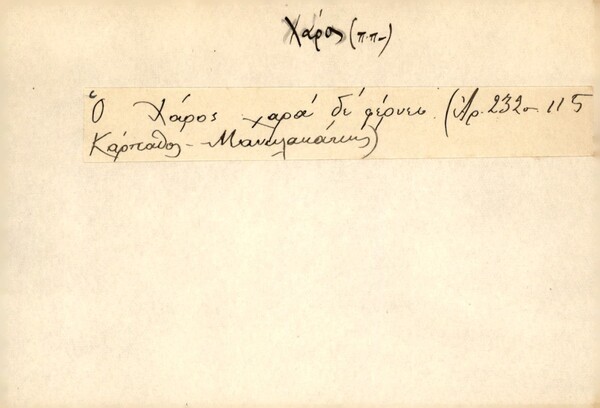 Χάρος (π.π-)
Ὁ Χάρος χαρά δέ φέρνει. (Ἀρ. 232 σ. 115
Κάρπαθος - Μανωλακάκης)